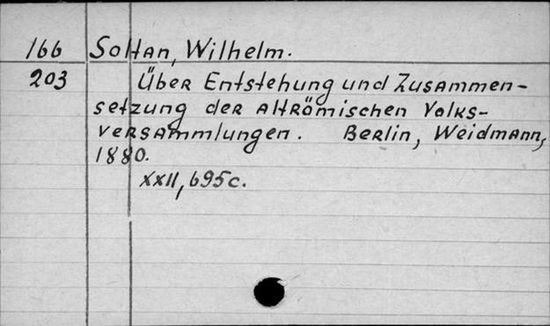 166 Soltan, Wilhelm.
203 Über Entstehung und Zusammen-
setzung der altrömischen Volks-
versammlungen. Berlin, Weidmann,
1880.
XXII, 695 c.